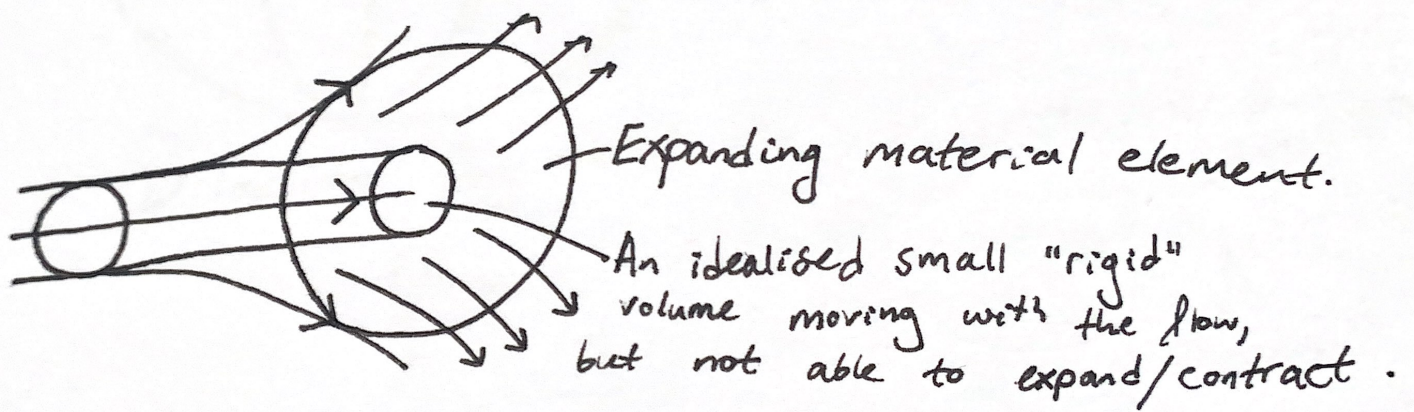 Expanding material element.
An idealised small "rigid"
volume moving with the flow,
but not able to expand/contract.